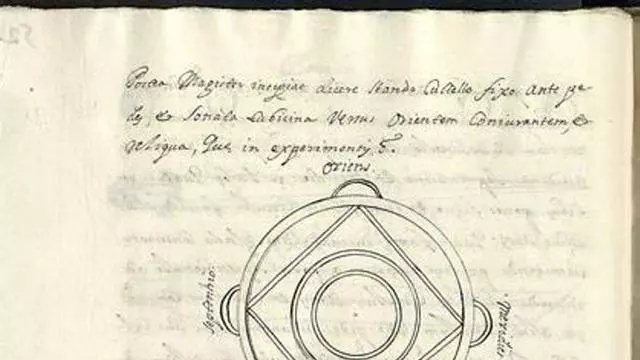 Postea Magister incipiat dicere stando Cultello fixo Ante pe-
des, et Sonata bucina Versus Orientem Coniurantem, et
reliqua, Quae in experimentis etc.
Oriens.
Septentrio.
Meridies